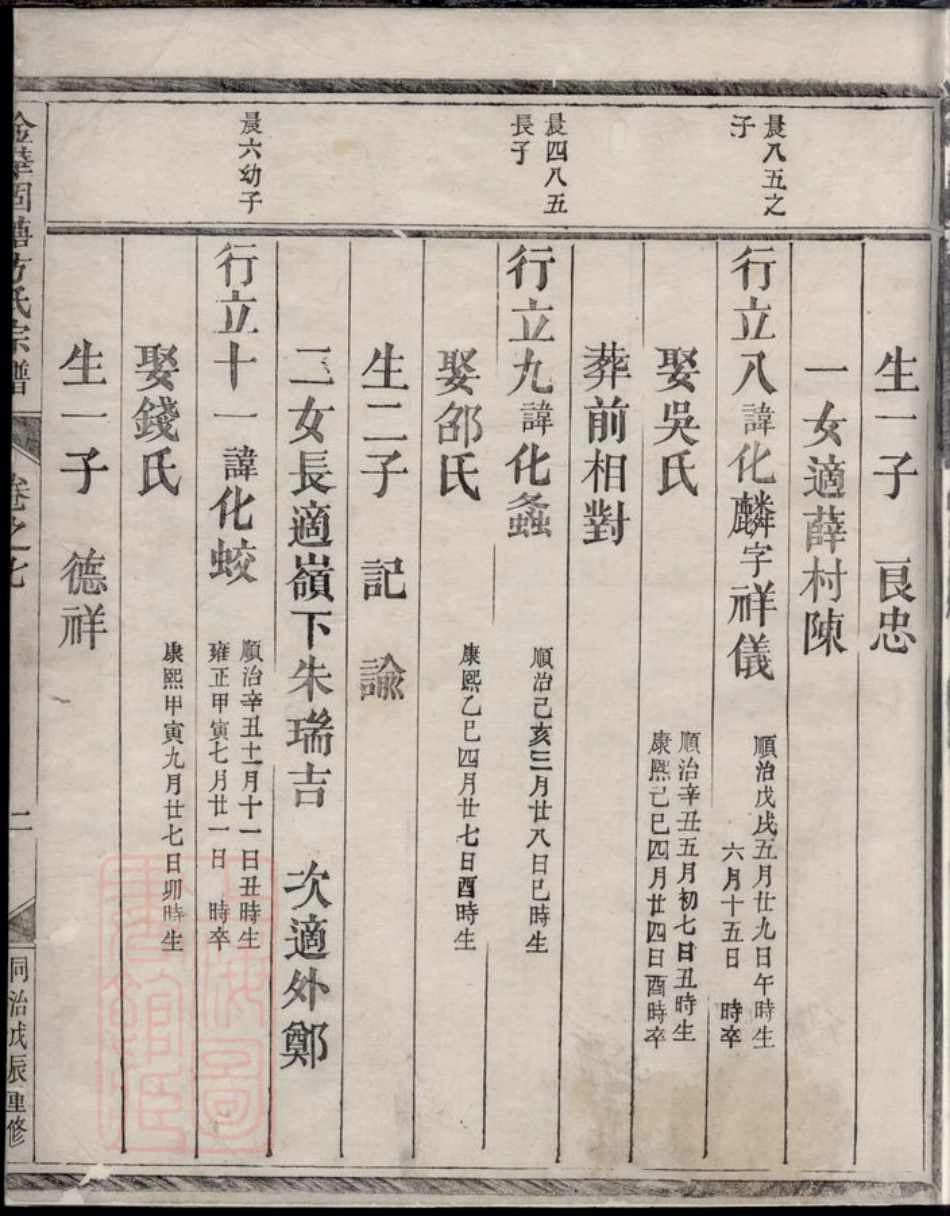 生一子　良忠
一女適薛村陳
晨八五之
子
行立八諱化麟字祥儀
順治戊戌五月廿九日午時生
六月十五日　時卒
娶吳氏
順治辛丑五月初七日丑時生
康熙己巳四月廿四日酉時卒
葬前相對
晨四八五
長子
行立九諱化螽
順治己亥三月廿八日巳時生
娶邵氏
康熙乙巳四月廿七日酉時生
生二子　記　諭
二女長適嶺下朱瑞吉　次適外鄭
晨六幼子
行立十一諱化蛟
順治辛丑十二月十一日丑時生
雍正甲寅七月廿一日　時卒
娶錢氏
康熙甲寅九月廿七日卯時生
生一子　德祥
金華固塘方氏宗譜
卷之七
二
同治戊辰重修